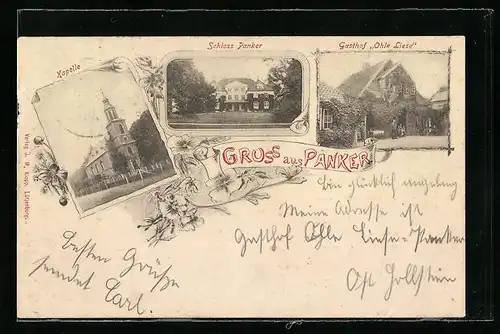 Kapelle
Schloss Panker
Gasthof „Ohle Liese“
GRUSS aus PANKER
Bin glücklich
Meine Adresse ist
Gasthof Ohle Liese-Panker
Ost Holstein
Besten Grüße
sendet Carl.
Verlag v.